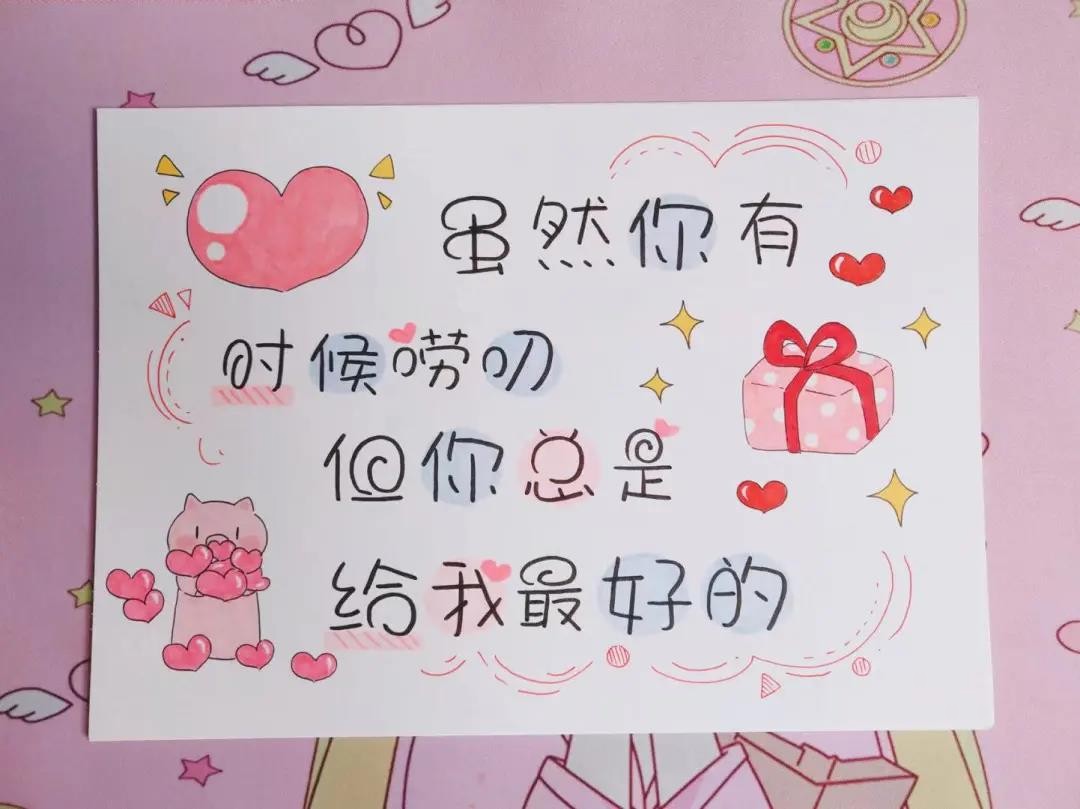 虽然你有
时候唠叨
但你总是
给我最好的